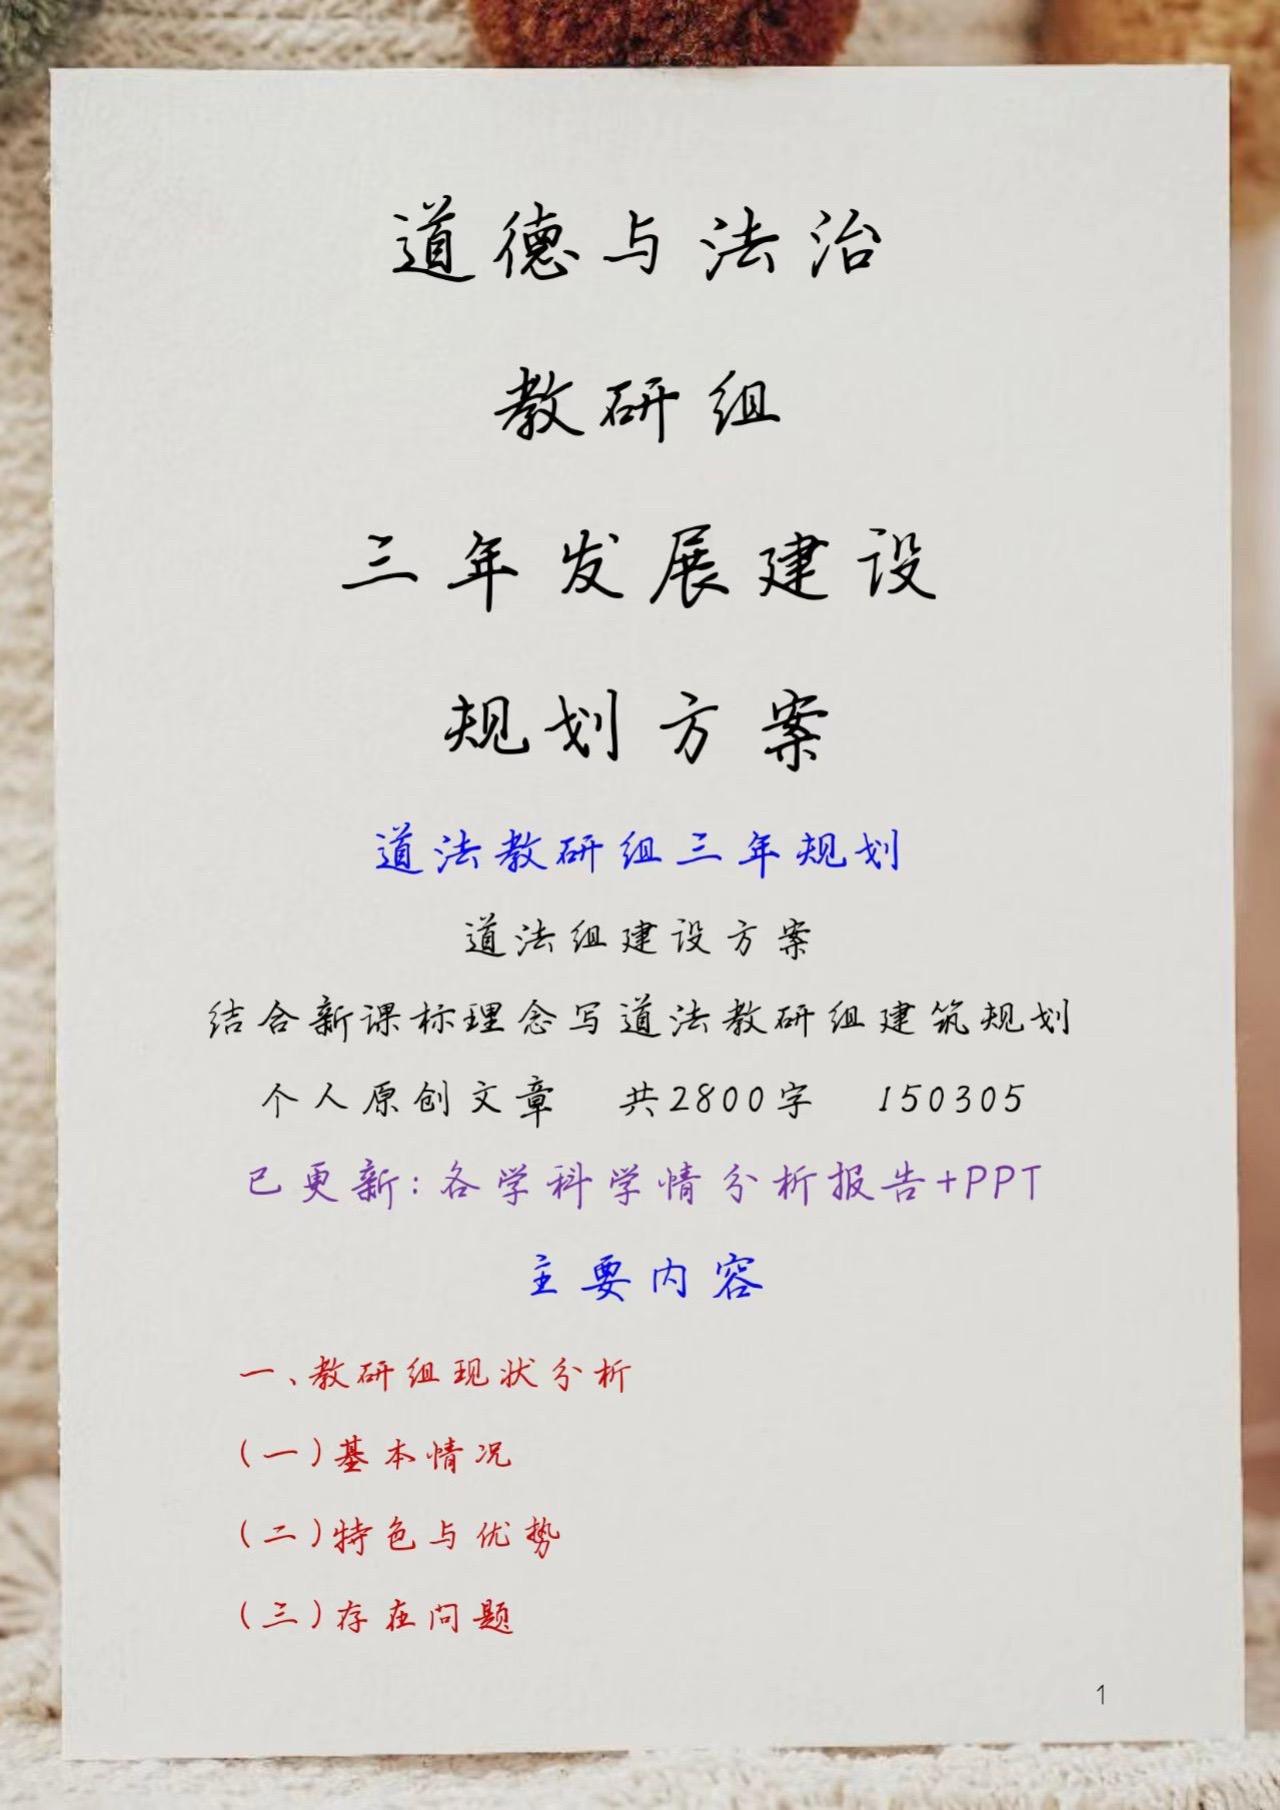 道德与法治
教研组
三年发展建设
规划方案
道法教研组三年规划
道法组建设方案
结合新课标理念写道法教研组建筑规划
个人原创文章 共2800字 150305
已更新:各学科学情分析报告+PPT
主要内容
一、教研组现状分析
(一)基本情况
(二)特色与优势
(三)存在问题
1